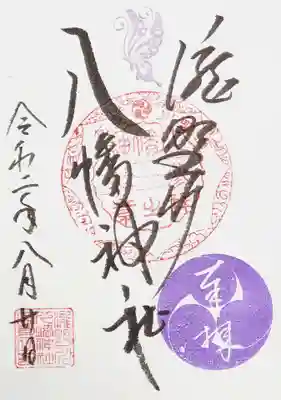 滝野川
八幡神社
奉拝
令和二年八月廿日